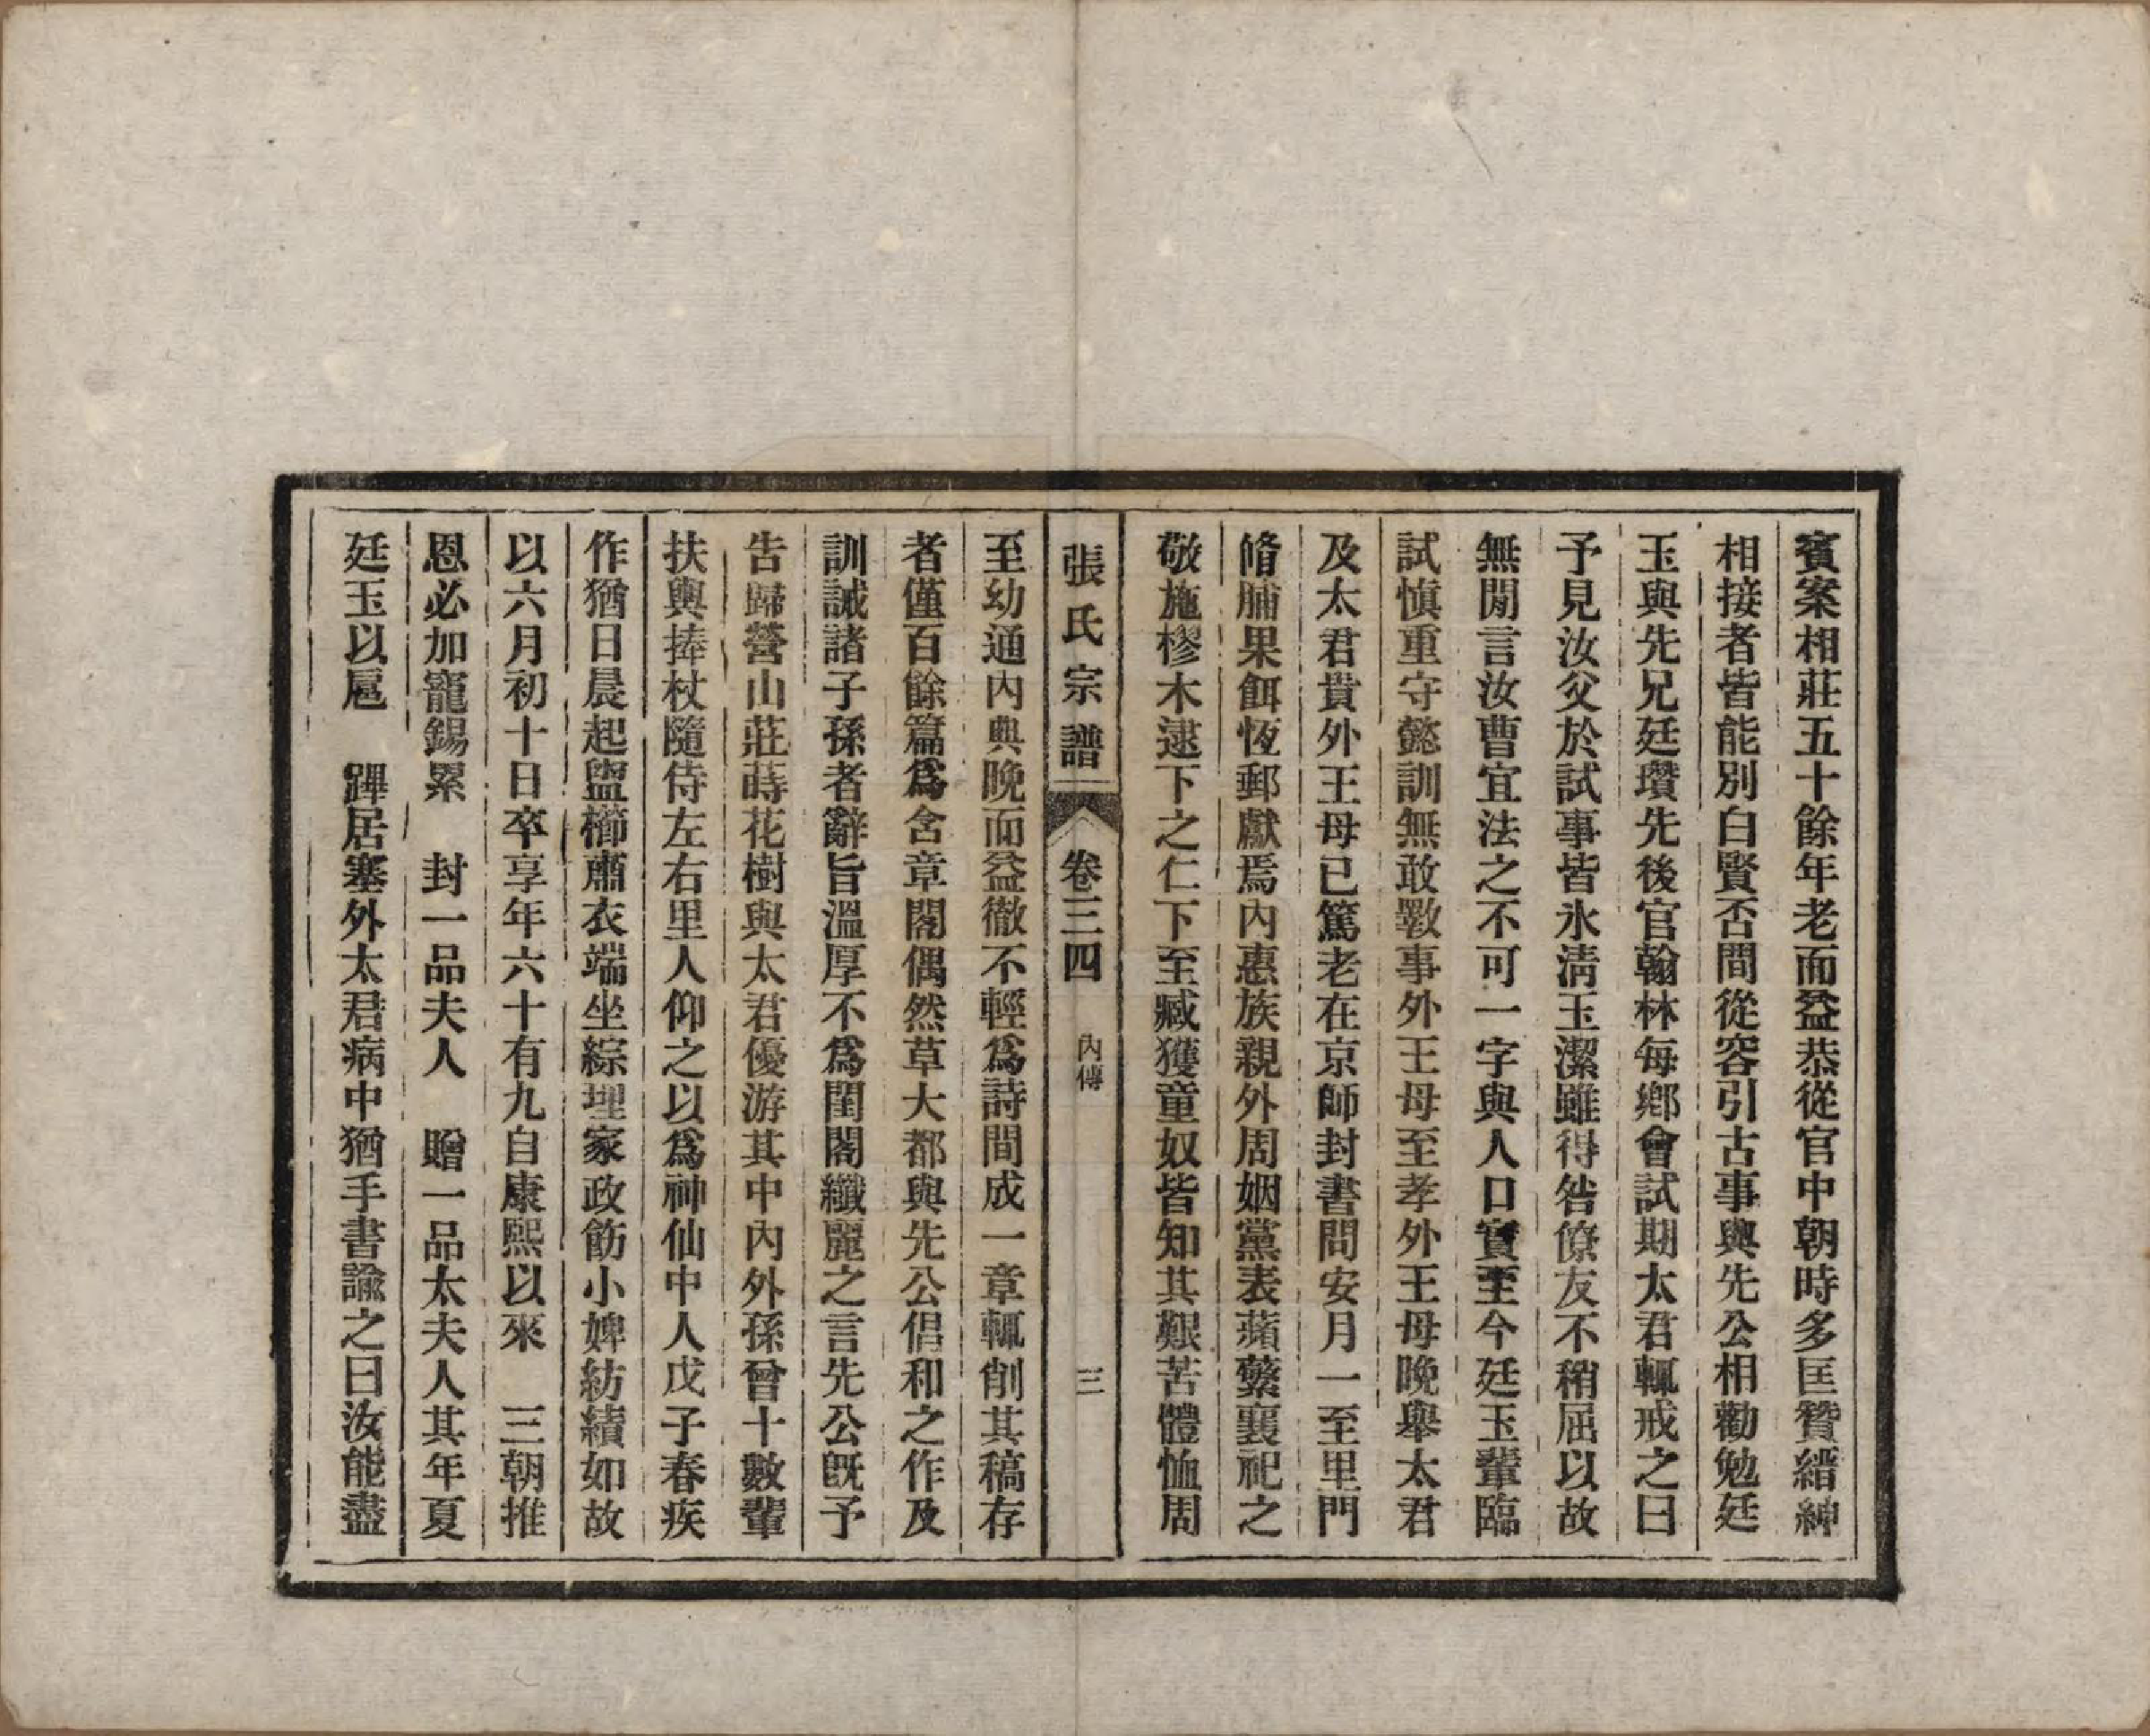 賓案相莊五十餘年老而益恭從官中朝時多匡贊縉紳
相接者皆能別白賢否間從容引古事與先公相勸勉廷
玉與先兄廷瓚先後官翰林每鄉會試期太君輒戒之曰
予見汝父於試事皆氷清玉潔雖得咎僚友不稍屈以故
無閒言汝曹宜法之不可一字與人口實至今廷玉輩臨
試慎重守懿訓無敢斁事外王母至孝外王母晚舉太君
及太君貴外王母已篤老在京師封書問安月一至里門
脩脯果餌恆郵獻焉內惠族親外周姻黨表蘋蘩襄祀之
敬施樛木逮下之仁下至臧獲童奴皆知其艱苦體恤周
張氏宗譜 卷三四 內傳 三
至幼通內典晚而益徹不輕爲詩間成一章輒削其稿存
者僅百餘篇爲含章閣偶然草大都與先公倡和之作及
訓誡諸子孫者辭旨溫厚不爲閨閣纖麗之言先公旣予
告歸營山莊蒔花樹與太君優游其中內外孫曾十數輩
扶輿捧杖隨侍左右里人仰之以爲神仙中人戊子春疾
作猶日晨起盥櫛肅衣端坐綜理家政飭小婢紡績如故
以六月初十日卒享年六十有九自康熙以來 三朝推
恩必加寵錫累 封一品夫人 贈一品太夫人其年夏
廷玉以扈 蹕居塞外太君病中猶手書諭之曰汝能盡